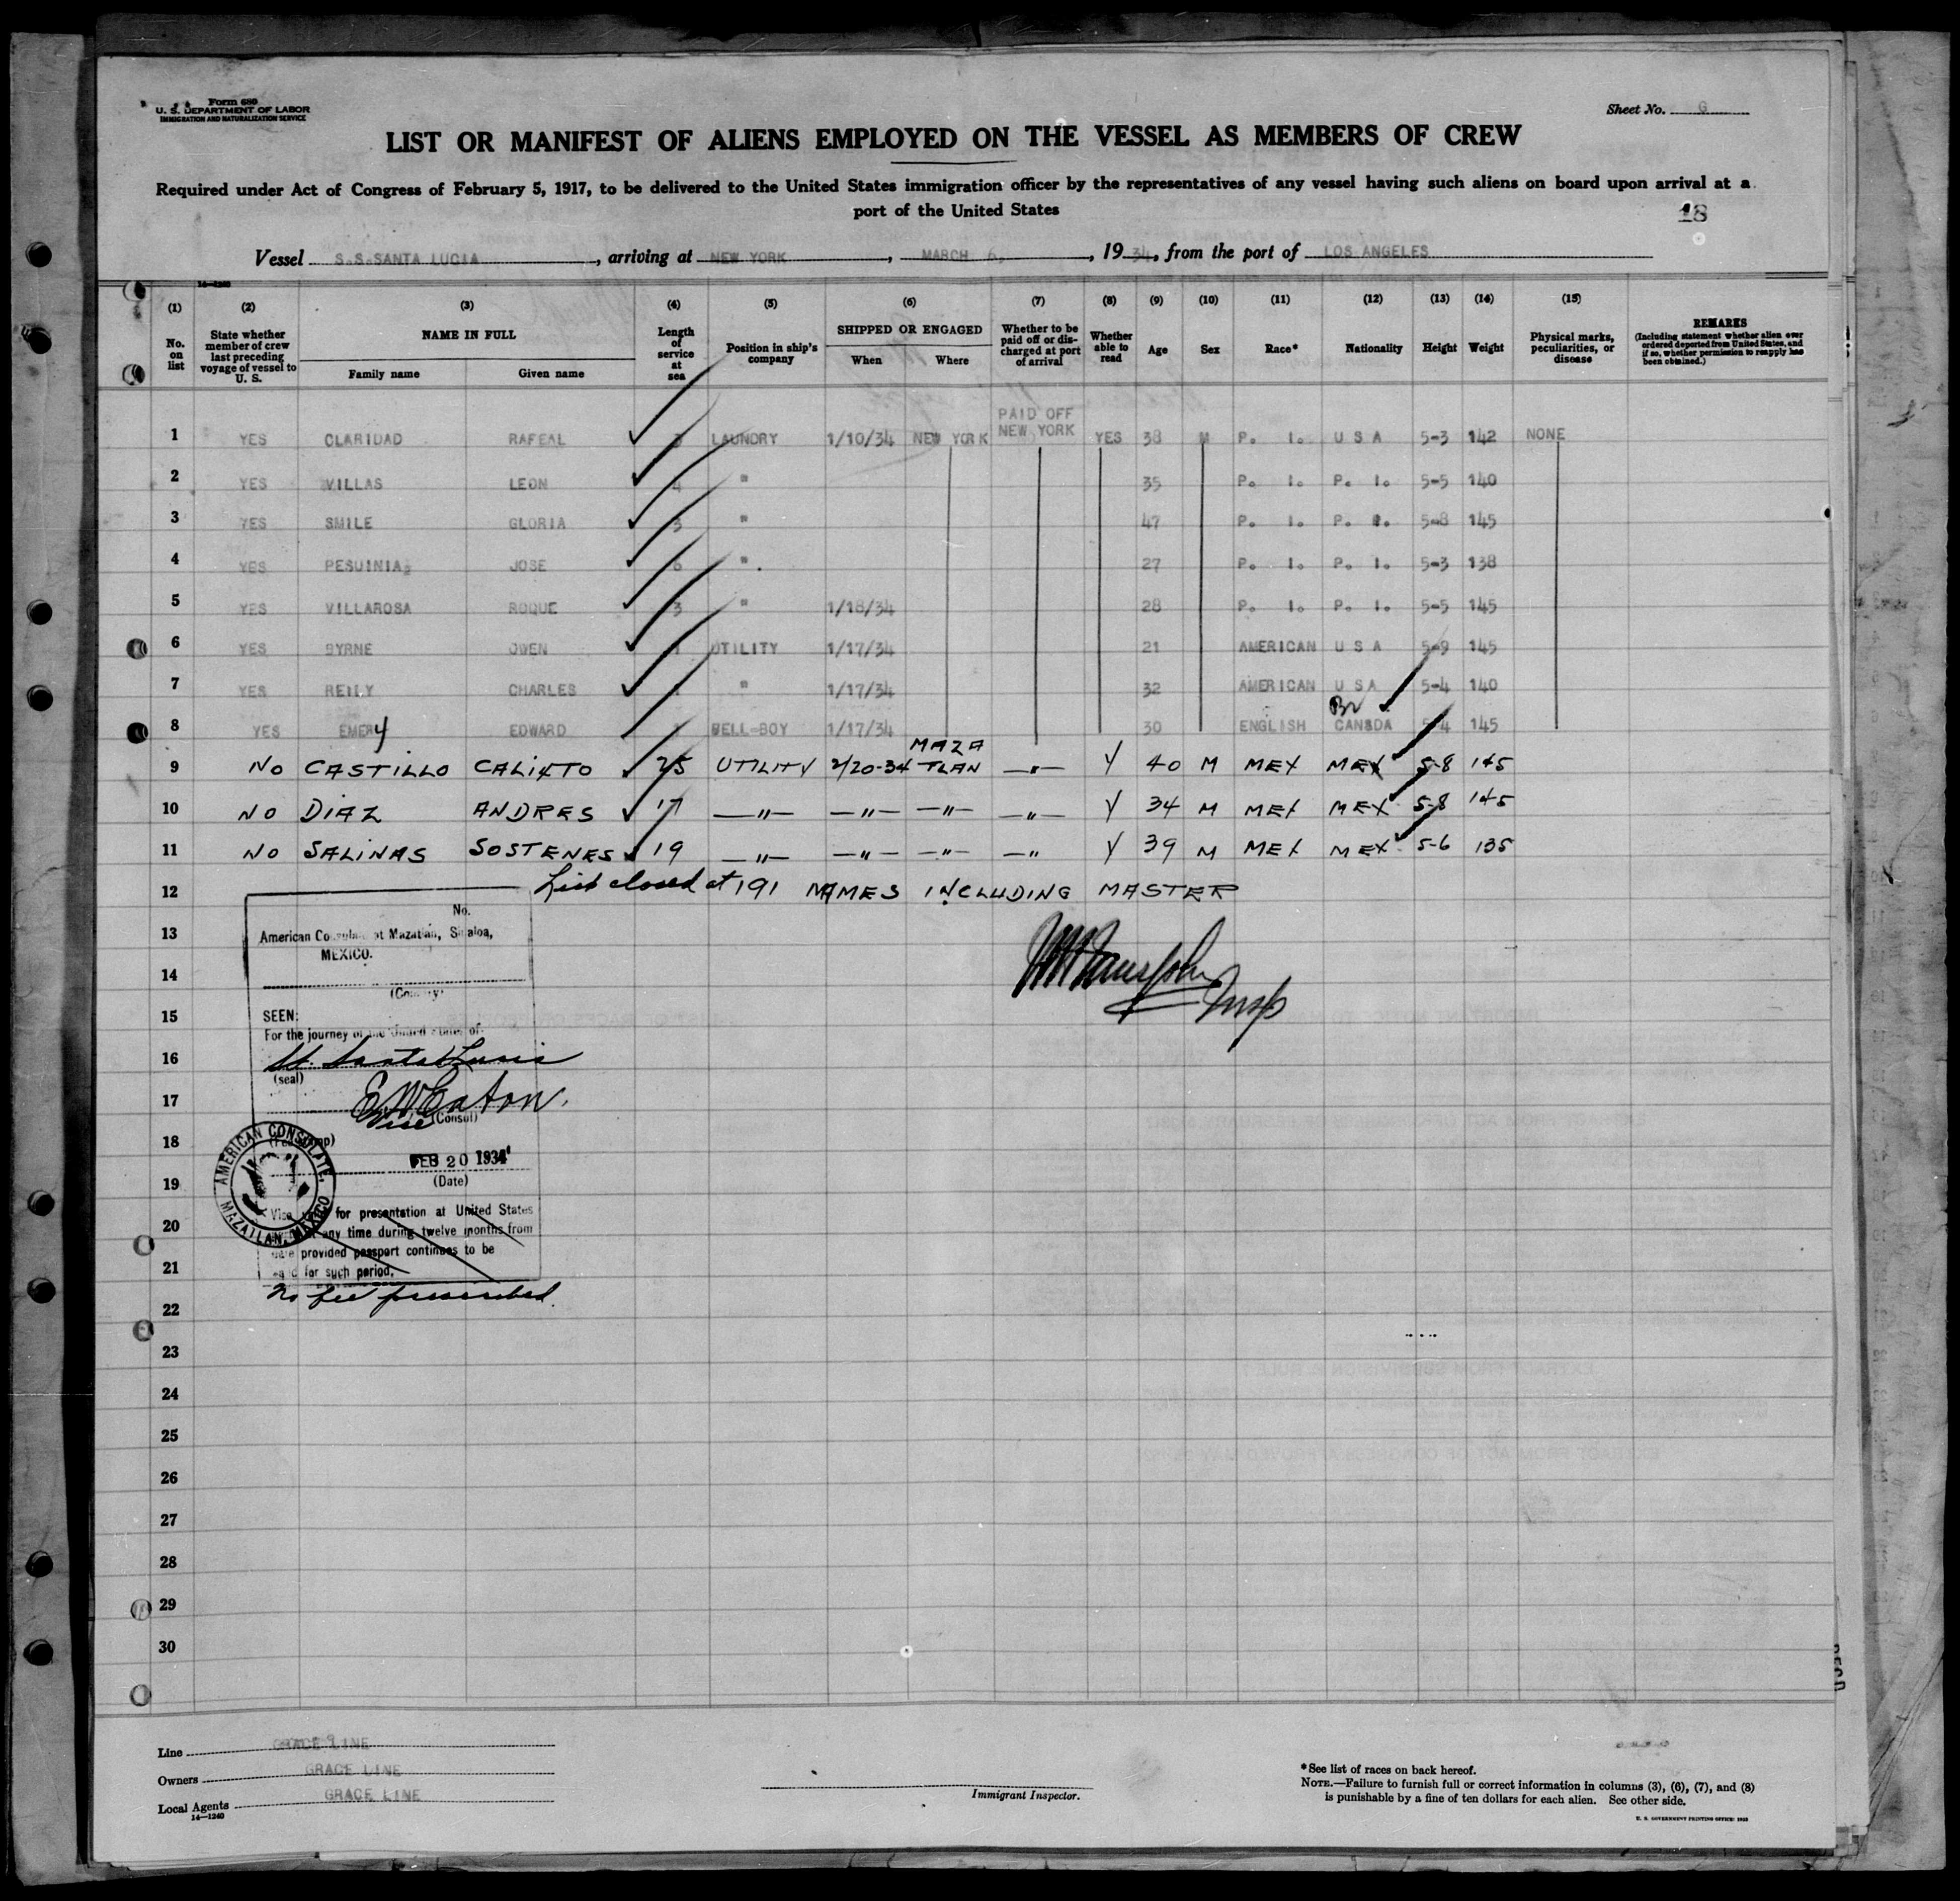 Form 680
U. S. DEPARTMENT OF LABOR
IMMIGRATION AND NATURALIZATION SERVICE
Sheet No. G
LIST OR MANIFEST OF ALIENS EMPLOYED ON THE VESSEL AS MEMBERS OF CREW
Required under Act of Congress of February 5, 1917, to be delivered to the United States immigration officer by the representatives of any vessel having such aliens on board upon arrival at a
port of the United States
18
Vessel S.S.SANTA LUCIA, arriving at NEW YORK, MARCH 6, 1934, from the port of LOS ANGELES
14-1240
(1) (2) (3) (4) (5) (6) (7) (8) (9) (10) (11) (12) (13) (14) (15)
No. on list
State whether member of crew last preceding voyage of vessel to U. S.
NAME IN FULL
Family name Given name
Length of service at sea
Position in ship's company
SHIPPED OR ENGAGED
When Where
Whether to be paid off or discharged at port of arrival
Whether able to read
Age
Sex
Race*
Nationality
Height
Weight
Physical marks, peculiarities, or disease
REMARKS
(Including statement whether alien ever ordered deported from United States, and if so, whether permission to reapply has been obtained.)
1 YES CLARIDAD RAFEAL 3 LAUNDRY 1/10/34 NEW YORK PAID OFF NEW YORK YES 38 M P. I. U S A 5-3 142 NONE
2 YES VILLAS LEON 4 " 35 P. I. P. I. 5-5 140
3 YES SMILE GLORIA 3 " 47 P. I. P. I. 5-8 145
4 YES PESUINIA JOSE 6 " 27 P. I. P. I. 5-3 138
5 YES VILLAROSA ROQUE 3 " 1/18/34 28 P. I. P. I. 5-5 145
6 YES BYRNE OWEN UTILITY 1/17/34 21 AMERICAN U S A 5-9 145
7 YES REILY CHARLES " 1/17/34 32 AMERICAN U S A 5-4 140
8 YES EMERY EDWARD BELL-BOY 1/17/34 30 ENGLISH Br CANADA 5-4 145
9 NO CASTILLO CALIXTO 25 UTILITY 2/20-34 MAZATLAN -"- Y 40 M MEX MEX 5-8 145
10 NO DIAZ ANDRES 17 -"- -"- -"- -"- Y 34 M MEX MEX 5-8 145
11 NO SALINAS SOSTENES 19 -"- -"- -"- -"- Y 39 M MEX MEX 5-6 135
12 List closed at 191 NAMES INCLUDING MASTER
13
14
15
16
17
18
19
20
21
22
23
24
25
26
27
28
29
30
No.
American Consulate at Mazatlan, Sinaloa,
MEXICO.
(Country)
SEEN:
For the journey to the United States of
SS. Santa Lucia
(seal)
E W Eaton
Vice (Consul)
(Fee stamp)
AMERICAN CONSULATE, MAZATLAN, MEXICO
FEB 20 1934
(Date)
for presentation at United States
any time during twelve months from
date provided passport continues to be
valid for such period.
No fee prescribed.
Insp
Line GRACE LINE
Owners GRACE LINE
Local Agents GRACE LINE
14-1240
Immigrant Inspector.
*See list of races on back hereof.
NOTE.—Failure to furnish full or correct information in columns (3), (6), (7), and (8)
is punishable by a fine of ten dollars for each alien. See other side.
U. S. GOVERNMENT PRINTING OFFICE: 1933